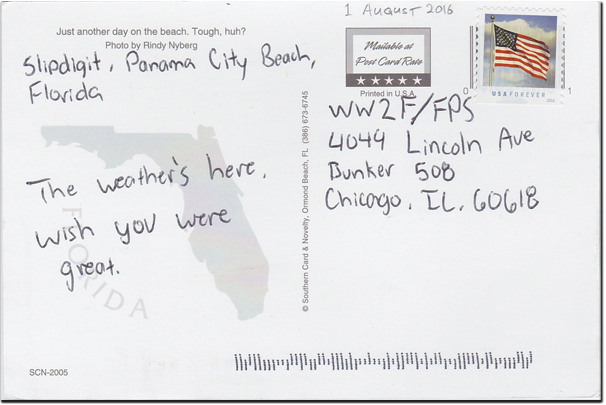 1 AUGUST 2016
Just another day on the beach. Tough, huh?
Photo by Rindy Nyberg
Slipdigit, Panama City Beach,
Florida
The weather's here,
wish you were
great.
FLORIDA
SCN-2005
© Southern Card & Novelty, Ormond Beach, FL (386) 673-6745
Mailable at
Post Card Rate
Printed in U.S.A.
USA FOREVER
0
1
WW2F/FPS
4049 Lincoln Ave
Bunker 508
Chicago, IL, 60618